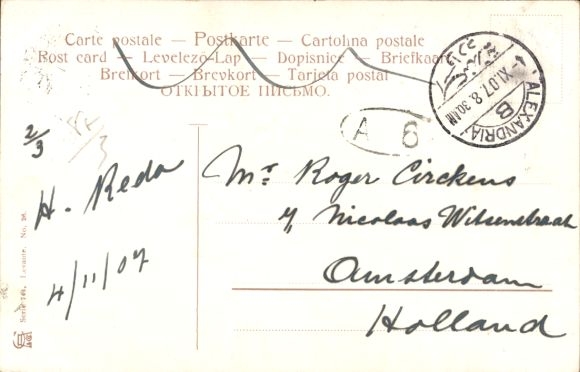 Carte postale – Postkarte – Cartolina postale
Post card – Levelező-Lap – Dopisnice – Briefkaart
Brefkort – Brevkort – Tarjeta postal
ОТКРЫТОЕ ПИСЬМО.
ALEXANDRIA
B
4-XI.07.8.30AM
A 6
2/3
H. Reda
4/11/07
Mr Roger Circkens
Nicolaas Witsenstraat
Amsterdam
Holland
Serie 769. Levante. No. 26.